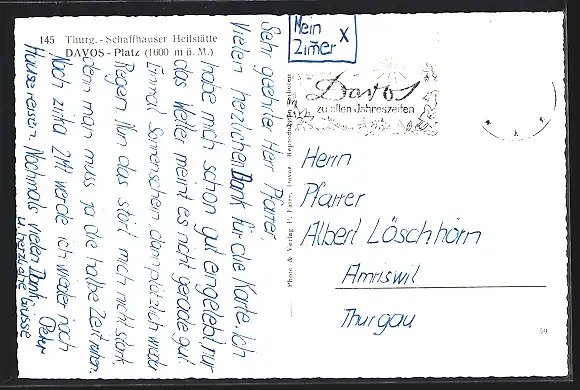 145 Thurg. - Schaffhauser Heilstätte
DAVOS - Platz (1600 m ü. M.)
Mein
Zimmer X
Davos
zu allen Jahreszeiten
Sehr geehrter Herr Pfarrer,
Vielen herzlichen Dank für die Karte. Ich
habe mich schon gut eingelebt nur
das Wetter meint es nicht gerade gut.
Einmal Sonnenschein dann plötzlich wieder
Regen. Nun das stört mich nicht stark
denn man muss ja die halbe Zeit ruhen.
Noch zirka 2 Mt werde ich wieder nach
Hause reisen. Nochmals vielen Dank
u. herzliche Grüsse
Peter
Photo & Verlag
Herrn
Pfarrer
Albert Löschhorn
Amriswil
Thurgau
59